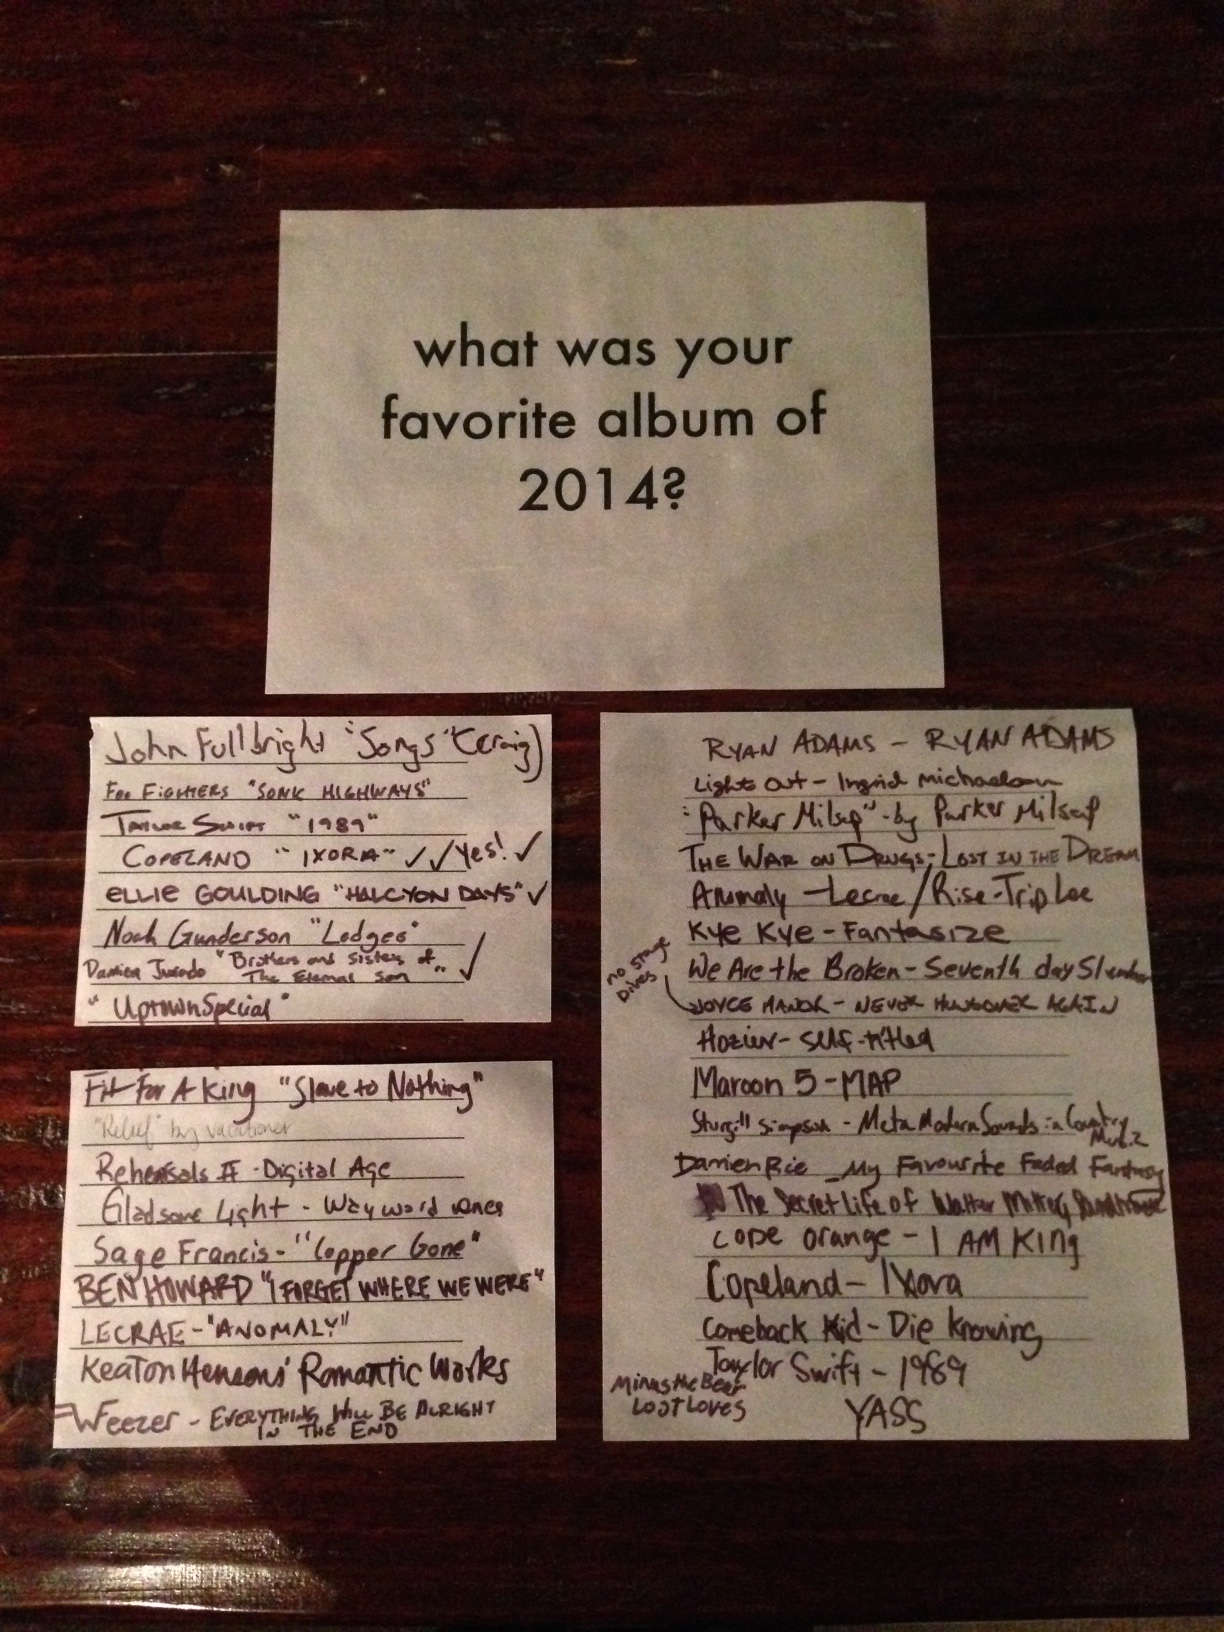 what was your
favorite album of
2014?
John Fullbright "Songs" (Craig)
Foo Fighters "SONIC HIGHWAYS"
Taylor Swift "1989"
COPELAND "IXORA" ✓ ✓ Yes! ✓
ELLIE GOULDING "HALCYON DAYS" ✓
Noah Gunderson "Ledges"
Damien Jurado "Brothers and Sisters of
The Eternal Son" ✓
"Uptown Special"
Fit For A King "Slave to Nothing"
"Relief" by vacationer
Rehearsals II - Digital Age
Gladsome Light - Wayward Ones
Sage Francis - "Copper Gone"
BEN HOWARD "I FORGET WHERE WE WERE"
LECRAE - "ANOMALY"
Keaton Hensons' Romantic Works
Weezer - EVERYTHING WILL BE ALRIGHT
IN THE END
RYAN ADAMS - RYAN ADAMS
Lights Out - Ingrid Michaelson
"Parker Milsap" - by Parker Milsap
THE WAR ON DRUGS - LOST IN THE DREAM
Anomaly - Lecrae / Rise - Trip Lee
Kye Kye - Fantasize
We Are the Broken - Seventh day Slumber
no stage
dives
JOYCE MANOR - NEVER HUNGOVER AGAIN
Hozier - self-titled
Maroon 5 - MAP
Sturgill Simpson - Meta Modern Sounds in Country
Damien Rice - My Favourite Faded Fantasy
The Secret Life of Walter Mitty
cope orange - I AM KING
Copeland - Ixora
Comeback Kid - Die Knowing
Taylor Swift - 1989
YASS
Minus the Bear
Lost Loves